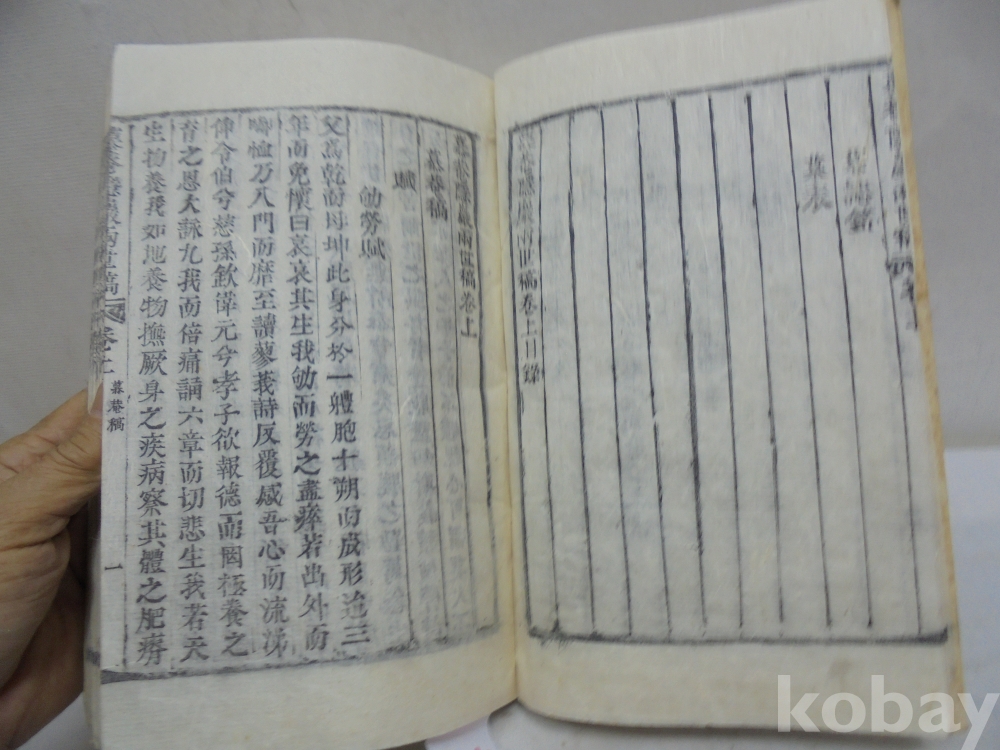 墓碣銘
墓表
慕菴隱巖兩世稿卷上目錄
慕菴隱巖兩世稿卷上
慕菴稿
賦
劬勞賦
父爲乾而母坤此身分於一體胞十朔而成形逾三
年而免懷曰哀哀其生我劬而勞之盡瘁若出外而
啣恤乃入門而靡至讀蓼莪詩反覆感吾心而流涕
偉令伯兮慈孫欽偉元兮孝子欲報德而罔極養之
育之恩大詠九我而倍痛誦六章而切悲生我若天
生物養我如地養物撫厥身之疾病察其體之肥瘠
慕菴隱巖兩世稿 卷上 慕菴稿 一
kobay